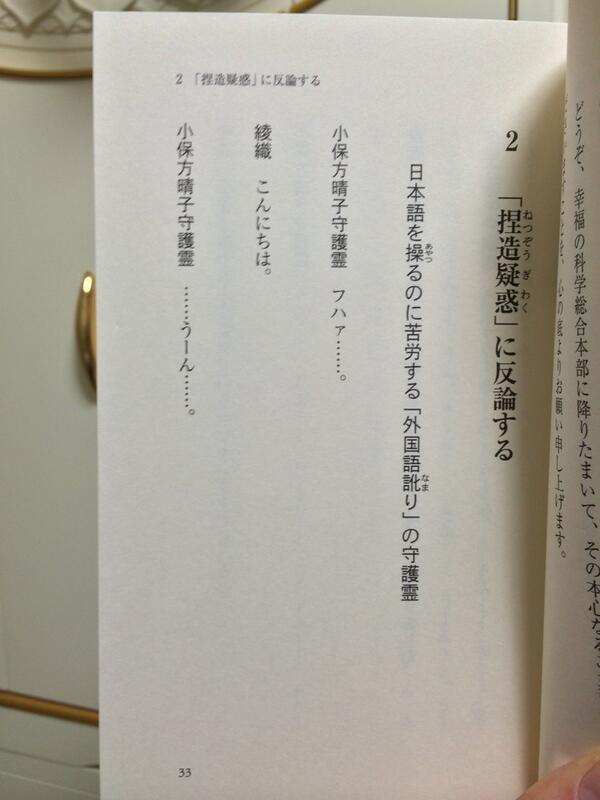 どうぞ、幸福の科学総合本部に降りたまいて、その本心なる
心の底よりお願い申し上げます。
2 「捏造疑惑」に反論する
2 「捏造疑惑」に反論する
ねつぞう ぎ わく
日本語を操るのに苦労する「外国語訛り」の守護霊
あやつ
なま
小保方晴子守護霊 フハァ……。
綾織 こんにちは。
小保方晴子守護霊 ……うーん……。
33